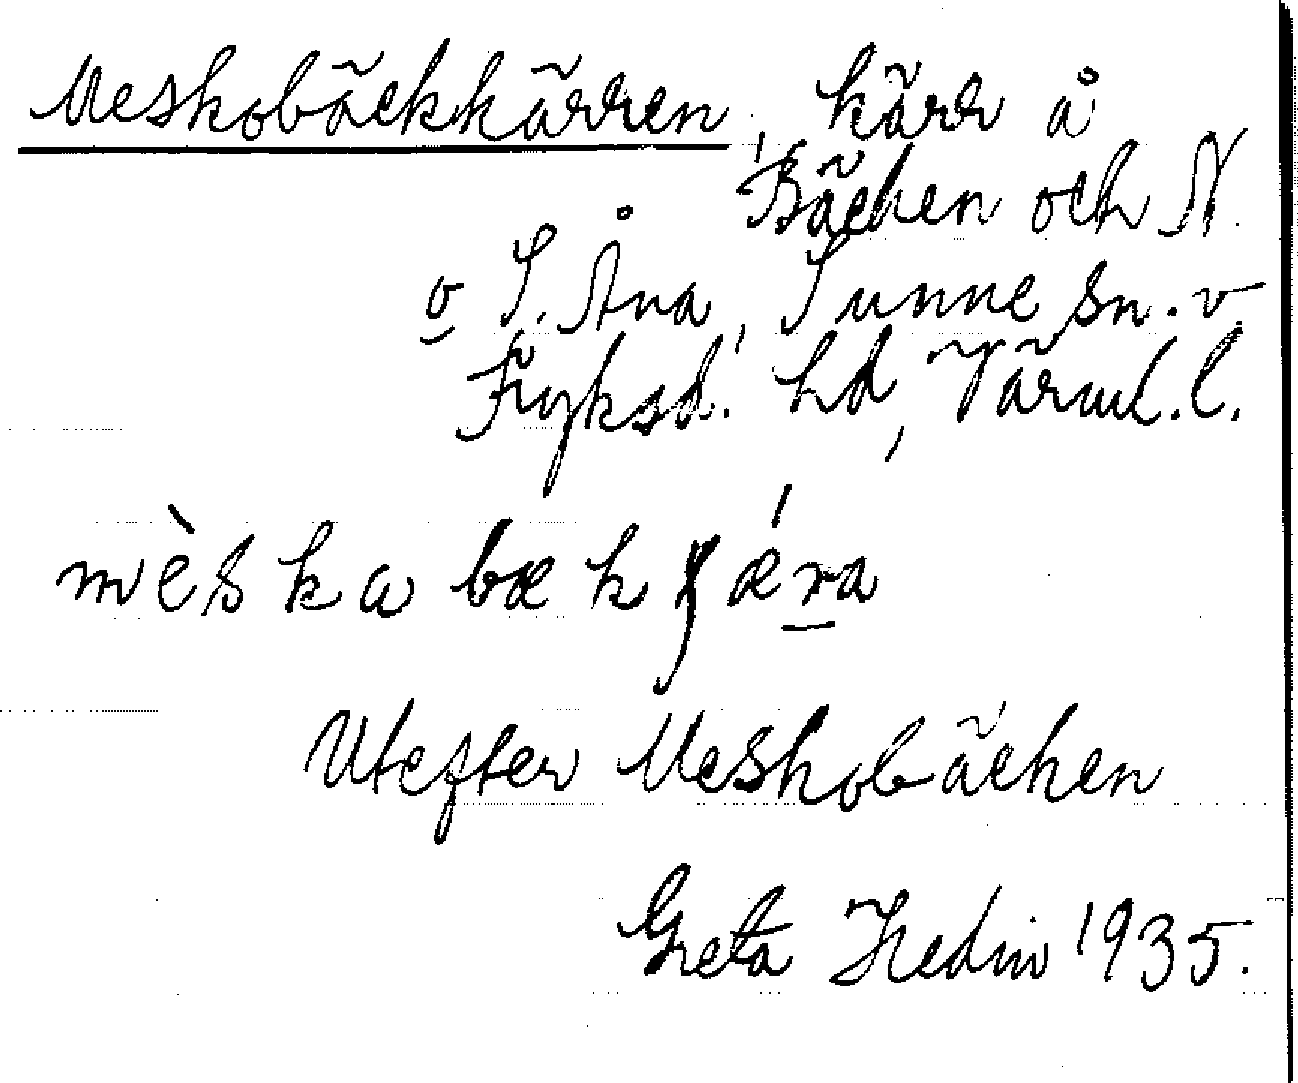 Meskobäckkärren, kärr å
Bäcken och N.
o S. Åna, Sunne sn. v.
Fryksd. hd, Värml. l.
mèska bæk ʃǽra
Utefter Meskobäcken
Greta Hedin 1935.